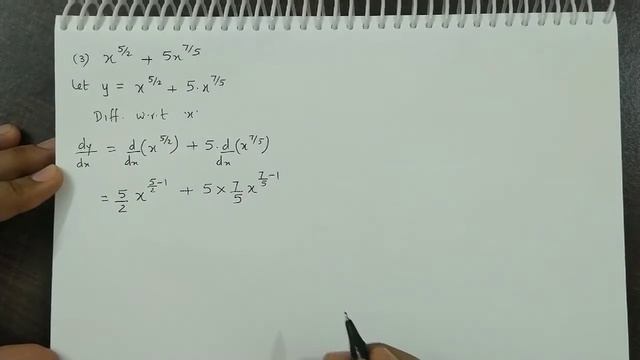 (3) x^{5/2} + 5x^{7/5}
Let y = x^{5/2} + 5.x^{7/5}
Diff. w.r.t 'x'
dy/dx = d/dx (x^{5/2}) + 5. d/dx (x^{7/5})
= 5/2 x^{5/2 -1} + 5 × 7/5 x^{7/5 -1}